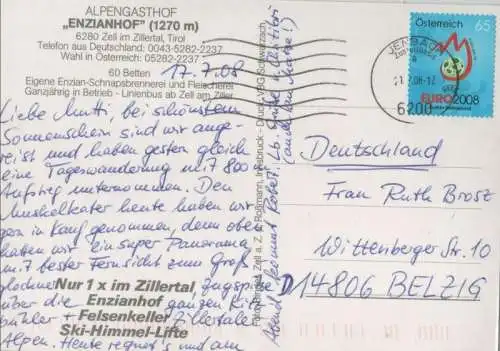 ALPENGASTHOF
„ENZIANHOF“ (1270 m)
6280 Zell im Zillertal, Tirol
Telefon aus Deutschland: 0043-5282-2237
Wahl in Österreich: 05282-2237
60 Betten
17.7.08
Eigene Enzian-Schnapsbrennerei und Fleischerei
Ganzjährig in Betrieb - Linienbus ab Zell am Ziller
Liebe Mutti, bei schönstem
Sonnenschein sind wir ange-
reist und haben gestern gleich
eine Tageswanderung mit 800
Aufstieg unternommen. Den
Muskelkater heute haben wir
gern in Kauf genommen, denn oben
hatten wir ein super Panorama
mit bester Fernsicht zum Groß
glockner, Zugspi
über die ganzen Kitz
bühler + Zillertaler
Alpen. Heute regnet's und am
Nur 1 x im Zillertal,
Enzianhof
+ Felsenkeller
Ski-Himmel-Lifte
Abend bekommt Robert
Roßmann, Innsbruck - Druck: VPG Schwarzach
Österreich 65
EURO2008
JENBACH
6200
Deutschland
Frau Ruth Brosz
Wittenberger Str. 10
D 14806 BELZIG